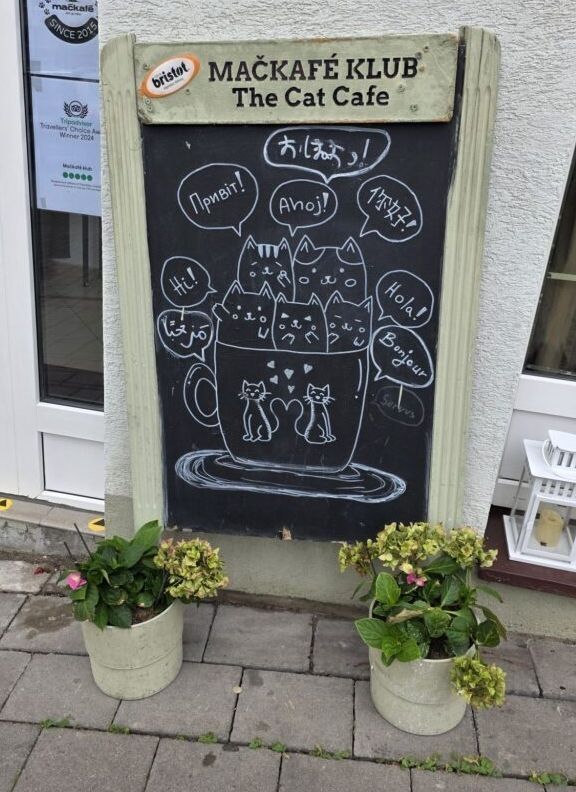 mačkafé
SINCE 2015
Tripadvisor
Travellers' Choice
Winner 2024
Mačkafé klub
bristot
MAČKAFÉ KLUB
The Cat Cafe
Привіт!
Ahoj!
你好!
Hi!
Hola!
Bonjour
Servus